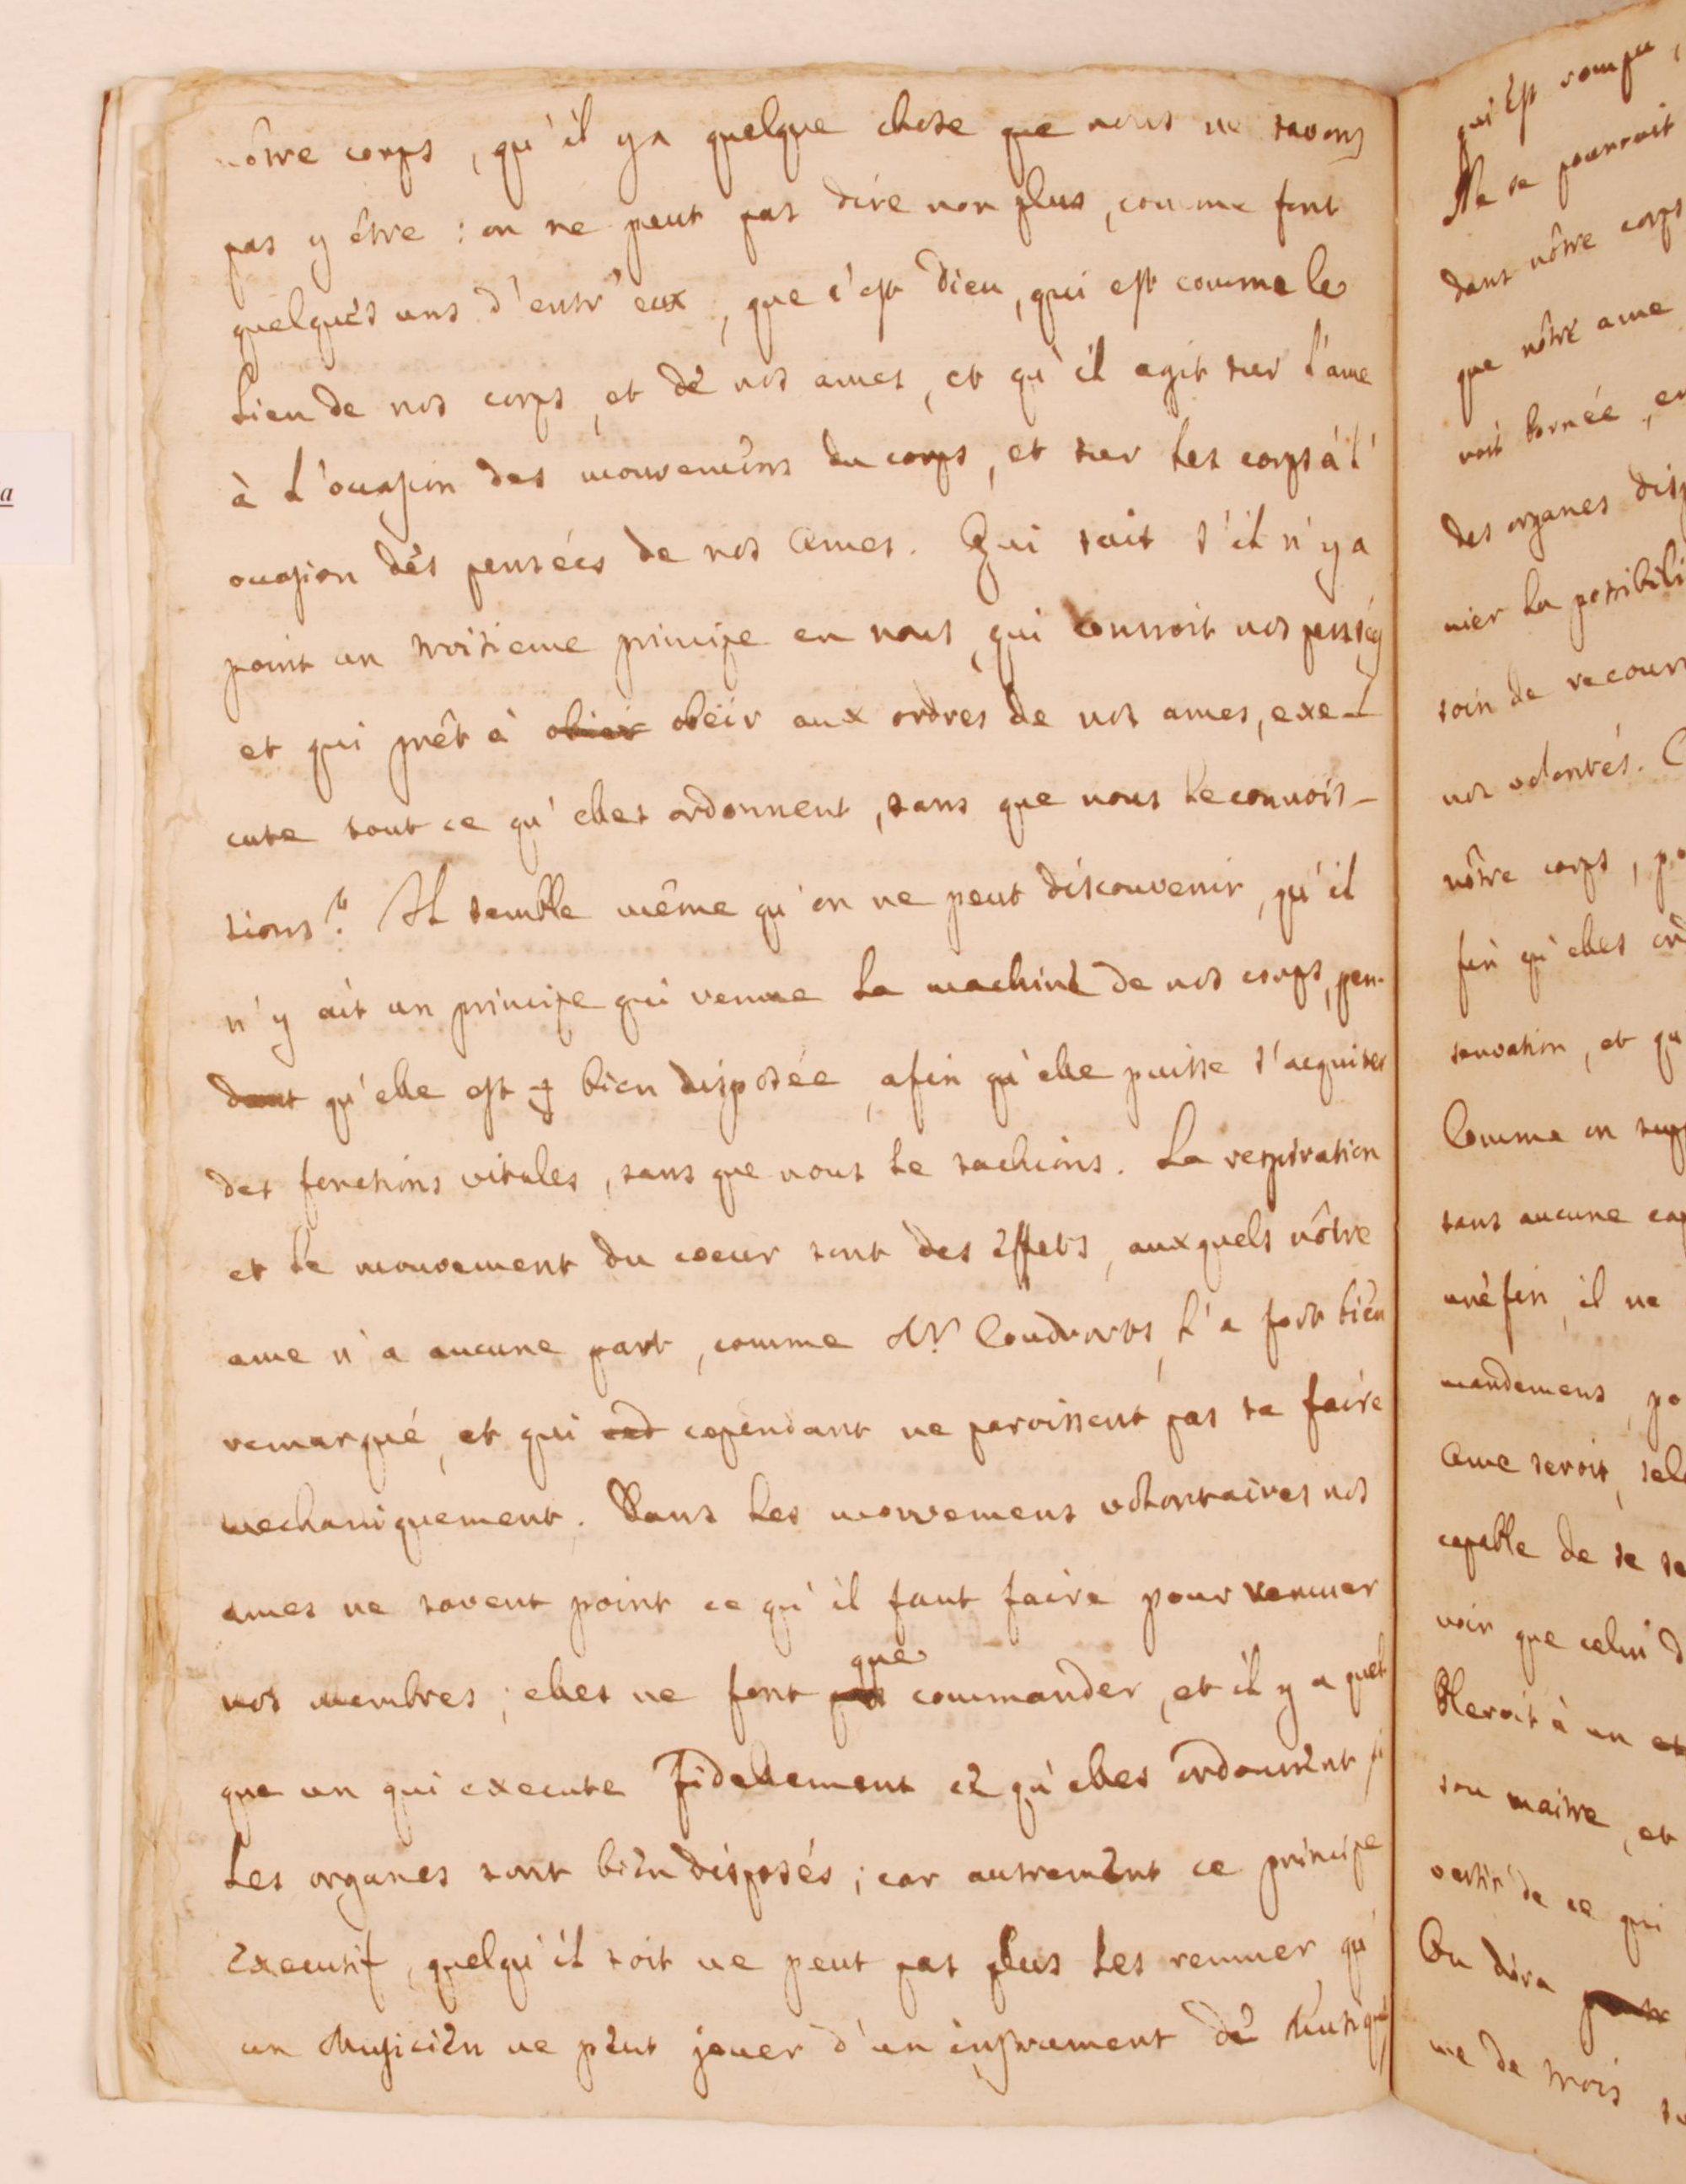 nôtre corps, qu'il y a quelque chose que nous ne savons
pas y être : on ne peut pas dire non plus, comme font
quelqués uns d'entr'eux, que c'est Dieu, qui est comme le
Lien de nos corps, et de nos ames, et qu'il agit sur l'ame
à l'occasion des mouvemens du corps, et sur les corps à l'
occasion des pensées de nos ames. Qui sait s'il n'y a
point un troisieme principe en nous, qui connoit nos pensées
et qui prêt à obieir obéir aux ordres de nos ames, exe-
cute tout ce qu'elles ordonnent, sans que nous le connois-
sions? Il semble même qu'on ne peut disconvenir, qu'il
n'y ait un principe qui remue la machine de nos corps, pen-
dant qu'elle est bien disposée, afin qu'elle puisse s'acquiter
des fonctions vitales, sans que nous le sachions. La respiration
et le mouvement du coeur sont des effets, auxquels nôtre
ame n'a aucune part, comme Mr. l'a fort bien
remarqué, et qui cependant ne paroissent pas se faire
mechaniquement. Dans les mouvemens volontaires nos
ames ne savent point ce qu'il faut faire pour remuer
que
nos membres; elles ne font pas commander, et il y a quel
que un qui execute fidellement ce qu'elles ordonnent si
les organes sont bien disposés; car autrement ce principe
executif, quelqu'il soit ne peut pas plus les remuer, qu'
un Musicien ne peut jouer d'un instrument de Musique
qui est rompu,
Ne se pourroit
dans nôtre corps
que nôtre ame
voit bornée, en
des organes disp
nier la possibili
soin de recour
nos volontés. C
nôtre corps, po
fin qu'elles
servation, et qu
Comme on
sans aucune
une fin, il ne
mandemens, po
ame seroit, sel
capable de se
voir que celui d
bleroit à un
son maitre, et
vertir de ce qui
On dira
me de trois